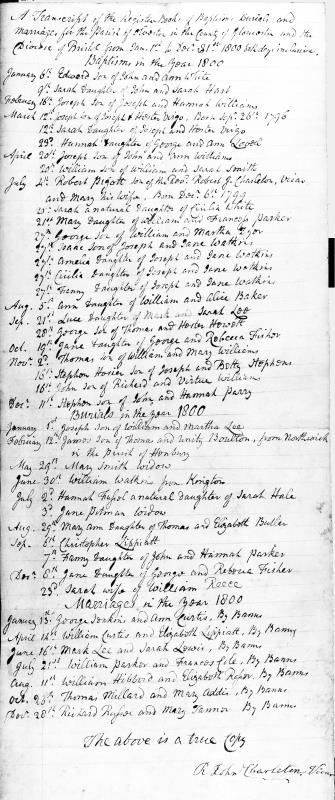 A Transcript of the Register Books of Baptisms Burials and
Marriages, for the Parish of Olveston in the County of Gloucester and the
Diocese of Bristol from Jan. 1st to Dec. 31st 1800 both days inclusive.
Baptisms in the Year 1800
January 6th Edward Son of John and Ann White
9th Sarah Daughter of John and Sarah Hart
February 16th Joseph Son of Joseph and Hannah Williams
March 12th Joseph Son of Joseph & Hester Virgo, Born Sep. 26th 1796
12th Sarah Daughter of Joseph and Hester Virgo
23d Hannah Daughter of George and Ann Lovell
April 20th Joseph Son of John and Ann Williams
20th William Son of William and Sarah Smith
July 4th Robert Pigott Son of the Revd Robert J. Charleton, Vicar
and Mary his Wife, Born Decr 6th 1799
Sarah a natural Daughter of Cicilia White
21st Mary Daughter of William and Frances Parker
27th George Son of William and Martha Pryor
27th Isaac Son of Joseph and Jane Watkins
27th Amelia Daughter of Joseph and Jane Watkins
27th Cicilia Daughter of Joseph and Jane Watkins
27th Fanny Daughter of Joseph and Jane Watkins
Aug. 5th Ann Daughter of William and Alice Baker
Sep. 21st Luce Daughter of Mark and Sarah Lee
28th George Son of Thomas and Hester Howett
Oct. 19th Jane Daughter of George and Rebecca Fisher
Novr 2d Thomas Son of William and Mary Williams
15th Stephen Hosier Son of Joseph and Betty Stephens
16th John Son of Richard and Virtue Williams
Decr 11th Stephen Son of John and Hannah Parry
Burials in the Year 1800
January 1st Joseph Son of William and Martha Lee
February 12th James Son of Thomas and Unity Boulton, from Northwick
in the Parish of Henbury
May 29th Mary Smith Widow
June 30th William Watkins from Kington
July 2d Hannah Fupol a natural Daughter of Sarah Hale
3d Jane Pitman Widow
Aug. 29th Mary Ann Daughter of Thomas and Elizabeth Butler
Sep. 6th Christopher Lippiatt
7th Fanny Daughter of John and Hannah Parker
Decr 6th Jane Daughter of George and Rebecca Fisher
23d Sarah Wife of William Reece
Marriages in the Year 1800
January 13th George Jenkins and Ann Curtis, By Banns
April 14th William Curtis and Elizabeth Lippiatt, By Banns
June 16th Mark Lee and Sarah Lewis, By Banns
July 21st William Parker and Frances Cole, By Banns
Aug. 11th William Hibberd and Elizabeth By Banns
Oct. 26th Thomas Millard and Mary Addis, By Banns
Decr 28th Richard and Mary Tanner By Banns
The above is a true Copy
R. John Charleton, Vicar